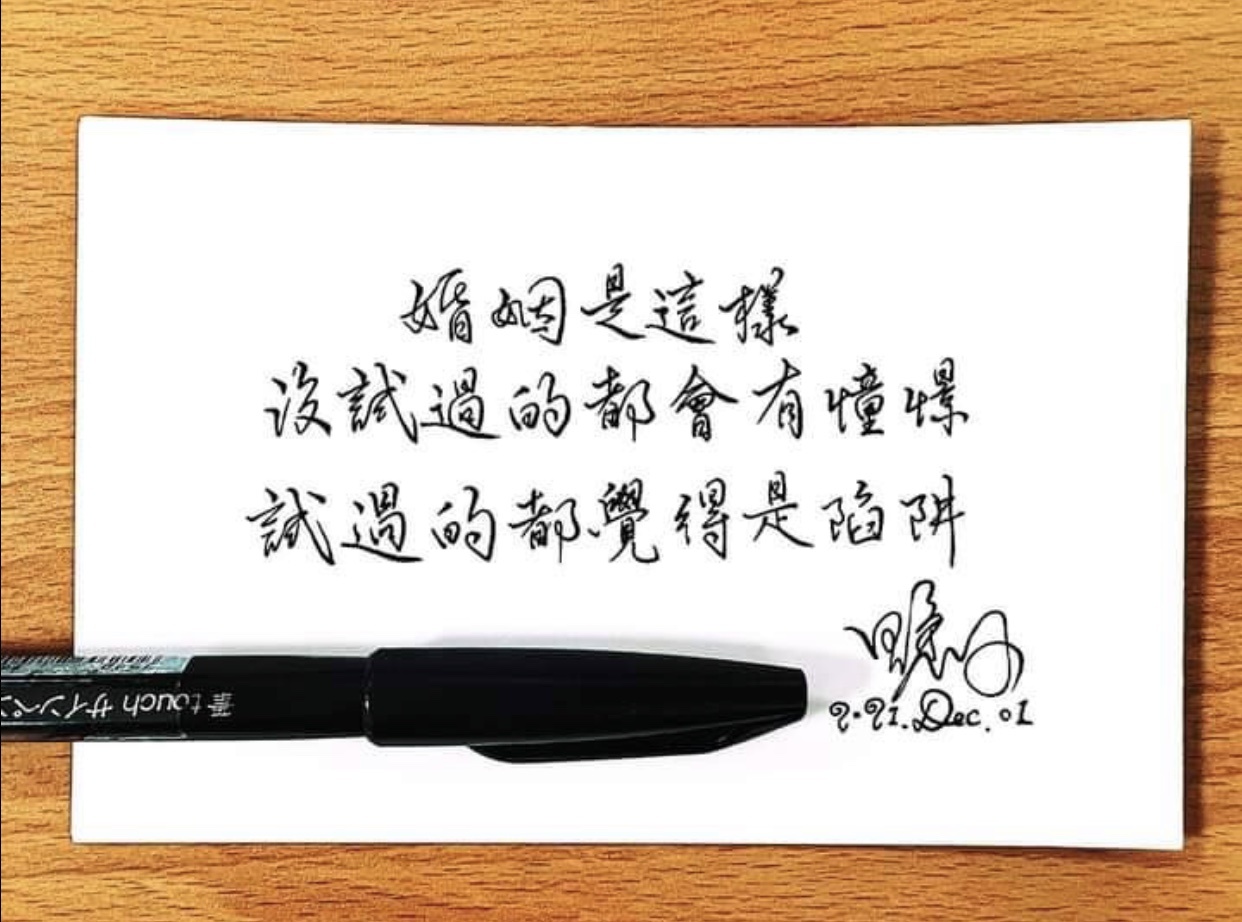 婚姻是這樣
沒試過的都會有憧憬
試過的都覺得是陷阱
2021.Dec.01
筆touch サインペン